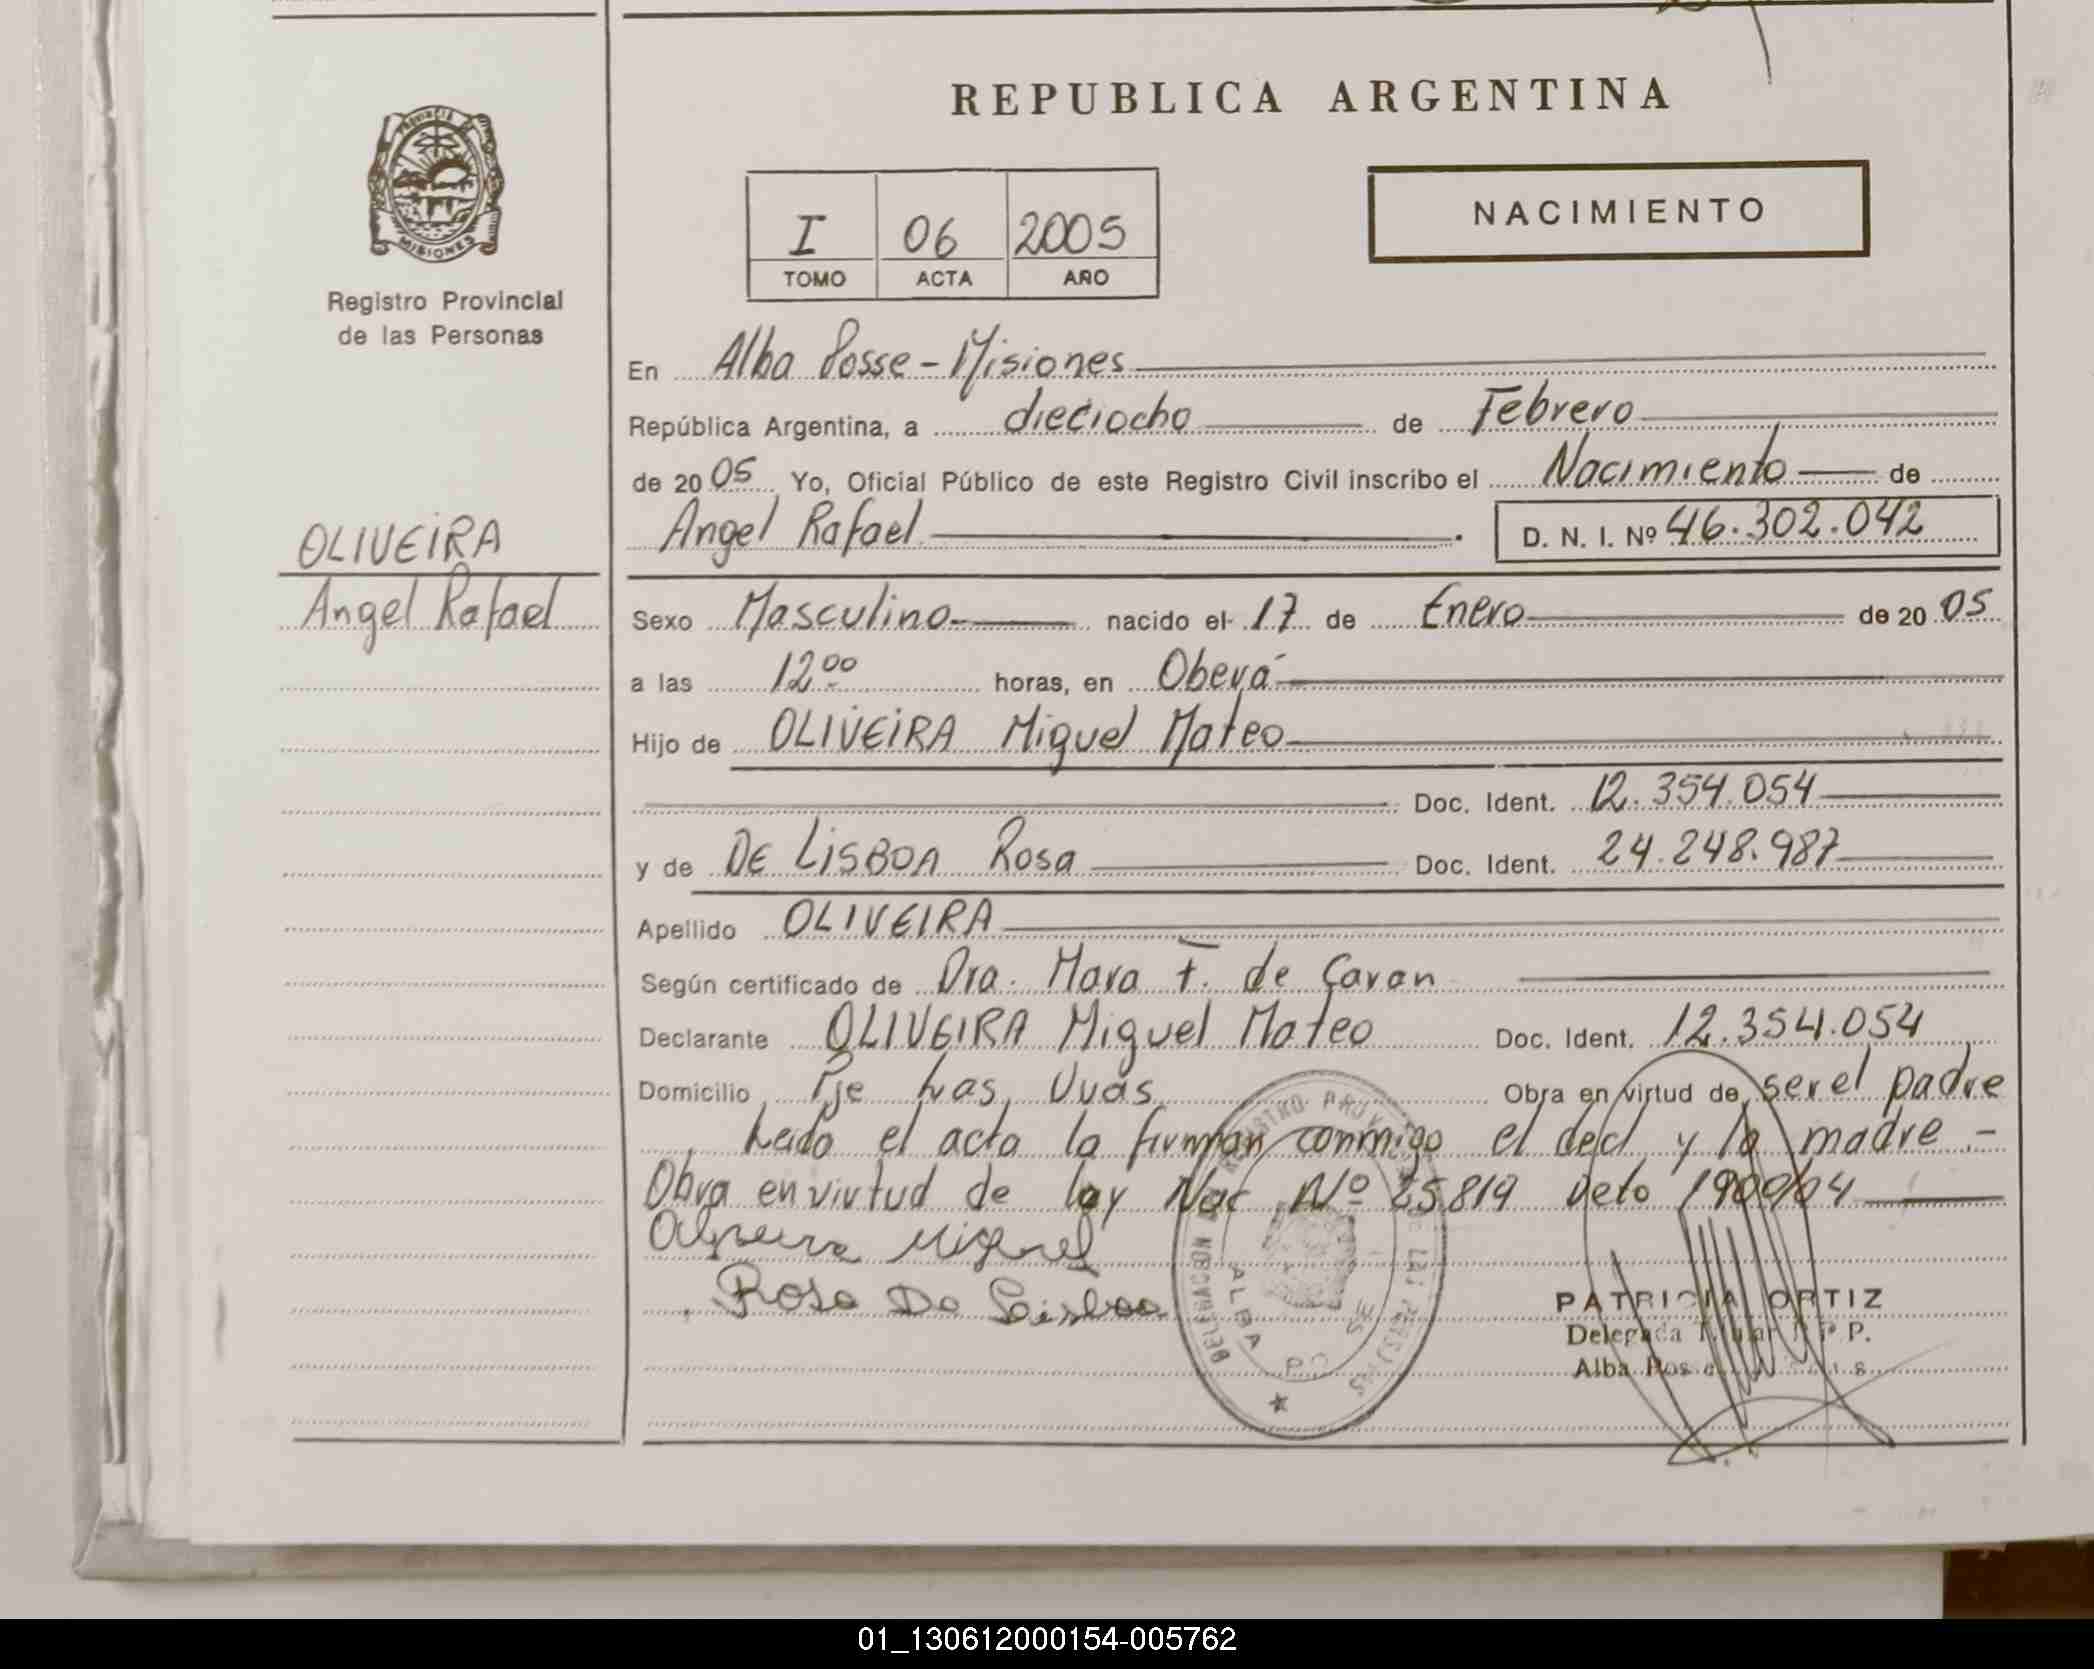 REPUBLICA ARGENTINA
PROVINCIA DE
MISIONES
Registro Provincial
de las Personas
I 06 2005
TOMO ACTA AÑO
NACIMIENTO
En Alba Posse - Misiones
República Argentina, a dieciocho de Febrero
de 2005 Yo, Oficial Público de este Registro Civil inscribo el Nacimiento de
Angel Rafael D. N. I. Nº 46.302.042
OLIVEIRA
Angel Rafael
Sexo Masculino nacido el 17 de Enero de 2005
a las 12 00 horas, en Oberá
Hijo de OLIVEIRA Miguel Mateo
Doc. Ident. 12.354.054
y de DE LISBOA Rosa Doc. Ident. 24.248.987
Apellido OLIVEIRA
Según certificado de Dra. Mara F. de
Declarante OLIVEIRA Miguel Mateo Doc. Ident. 12.354.054
Domicilio Pje Las Uvas Obra en virtud de ser el padre
Leido el acta la firman conmigo el decl y la madre .-
Obra en virtud de ley Nac Nº 25819
Miguel
Rosa De Lisboa
ALBA
PATRICIA ORTIZ
Delegada Titular R P P.
Alba Posse
01_130612000154-005762